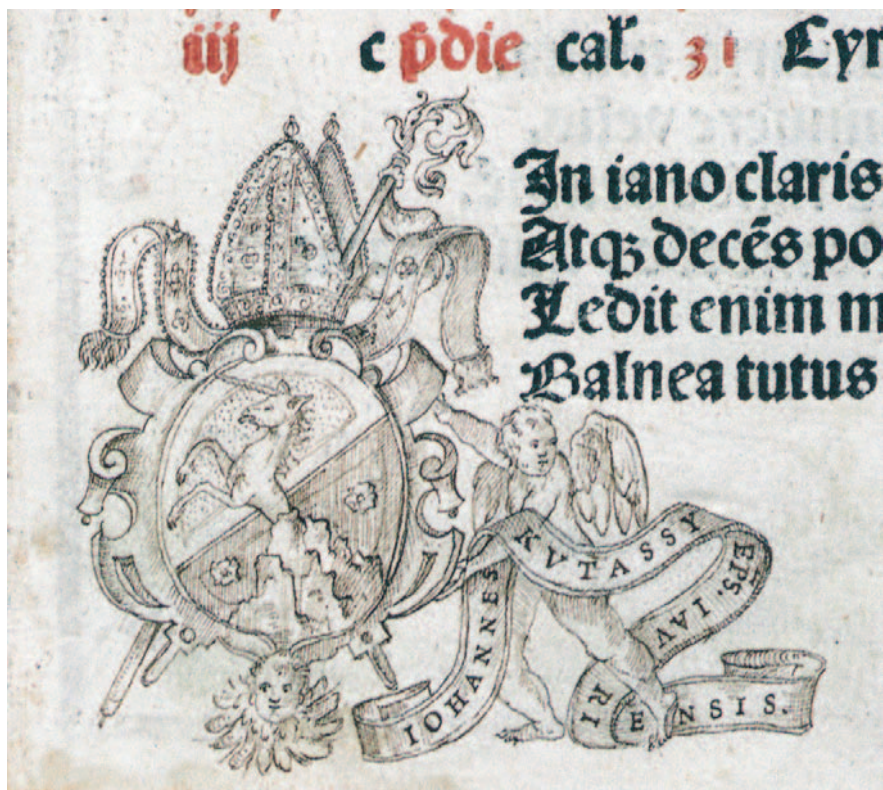 iiij c p̄die cal. 31 Cyr
In iano claris
Atqꝫ decēs po
Ledit enim m
Balnea tutus
IOHANNES KVTASSY EPS. IAVRIENSIS.